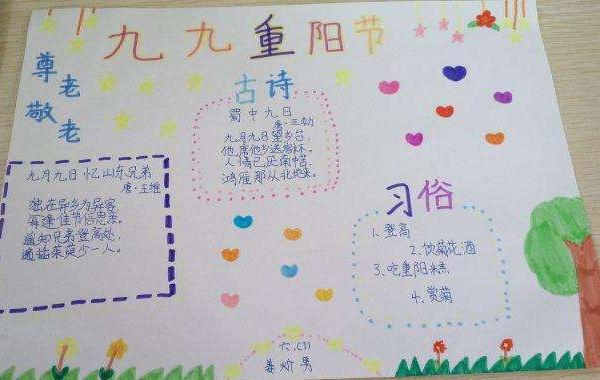 九九重阳节
尊老
敬老
古诗
蜀中九日
唐·王勃
九月九日望乡台，
他席他乡送客杯。
人情已厌南中苦，
鸿雁那从北地来。
九月九日忆山东兄弟
唐·王维
独在异乡为异客
每逢佳节倍思亲。
遥知兄弟登高处，
遍插茱萸少一人。
习俗
1、登高
2、饮菊花酒
3、吃重阳糕
4、赏菊
六.(1)